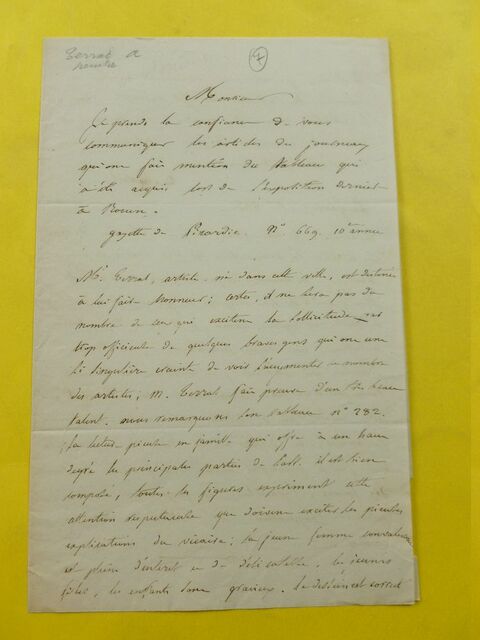 Terral A
peintre
7
Monsieur
Je prends la confiance de vous
communiquer les articles de journaux
qui ont fait mention du tableau qui
a été acquis lors de l'exposition dernière
à Rouen.
gazette de Picardie. N° 669. 10e année
M. Terral, artiste né dans cette ville, est destiné
à lui faire honneur; certes, il ne sera pas du
nombre de ceux qui excitent la sollicitude
trop officieuse de quelques braves gens qui ont une
si singulière crainte de voir s'augmenter le nombre
des artistes; M. Terral fait preuve d'un très beau
talent. nous remarquons son tableau n° 282.
La lecture pieuse en famille qui offre à un haut
degré les principales parties de l'art. il est bien
composé, toutes les figures expriment cette
attention respectueuse que doivent exciter les pieuses
explications du vicaire; la jeune femme convalescente
est pleine d'intérêt et de délicatesse, les jeunes
filles, les enfants sont gracieux. le dessin est correct